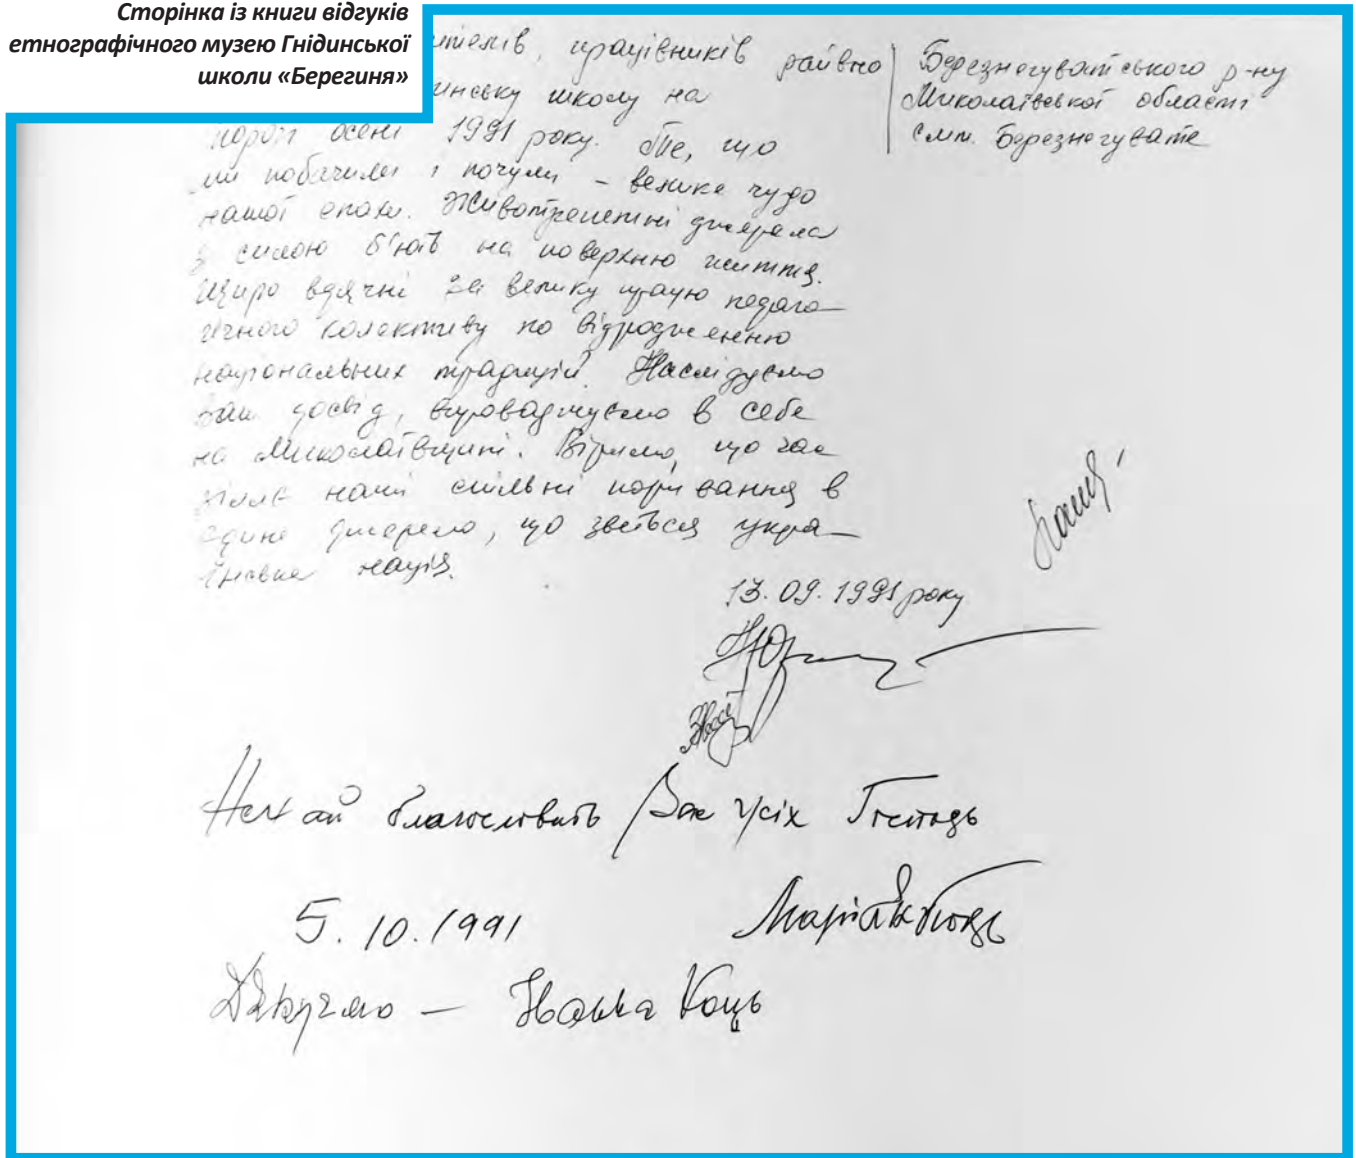 Сторінка із книги відгуків
етнографічного музею Гнідинської
школи «Берегиня»
ителів, працівників райвно
инську школу на
порозі осені 1991 року. Те, що
ми побачили і почули – велике чудо
нашої епохи. Животрепетні джерела
з силою б'ють на поверхню життя.
Щиро вдячні за велику працю педаго–
гічного колективу по відродженню
національних традицій. Наслідуємо
ваш досвід, впроваджуємо в себе
на Миколаївщині. Віримо, що час
зіллє наші спільні поривання в
єдине джерело, що зветься укра–
їнська нація.
Березнегуватського р-ну
Миколаївської області
смт. Березнегувате
13.09.1991 року
Нехай благословить Вас усіх Господь
5.10.1991
Дякуємо – Іванка Коць